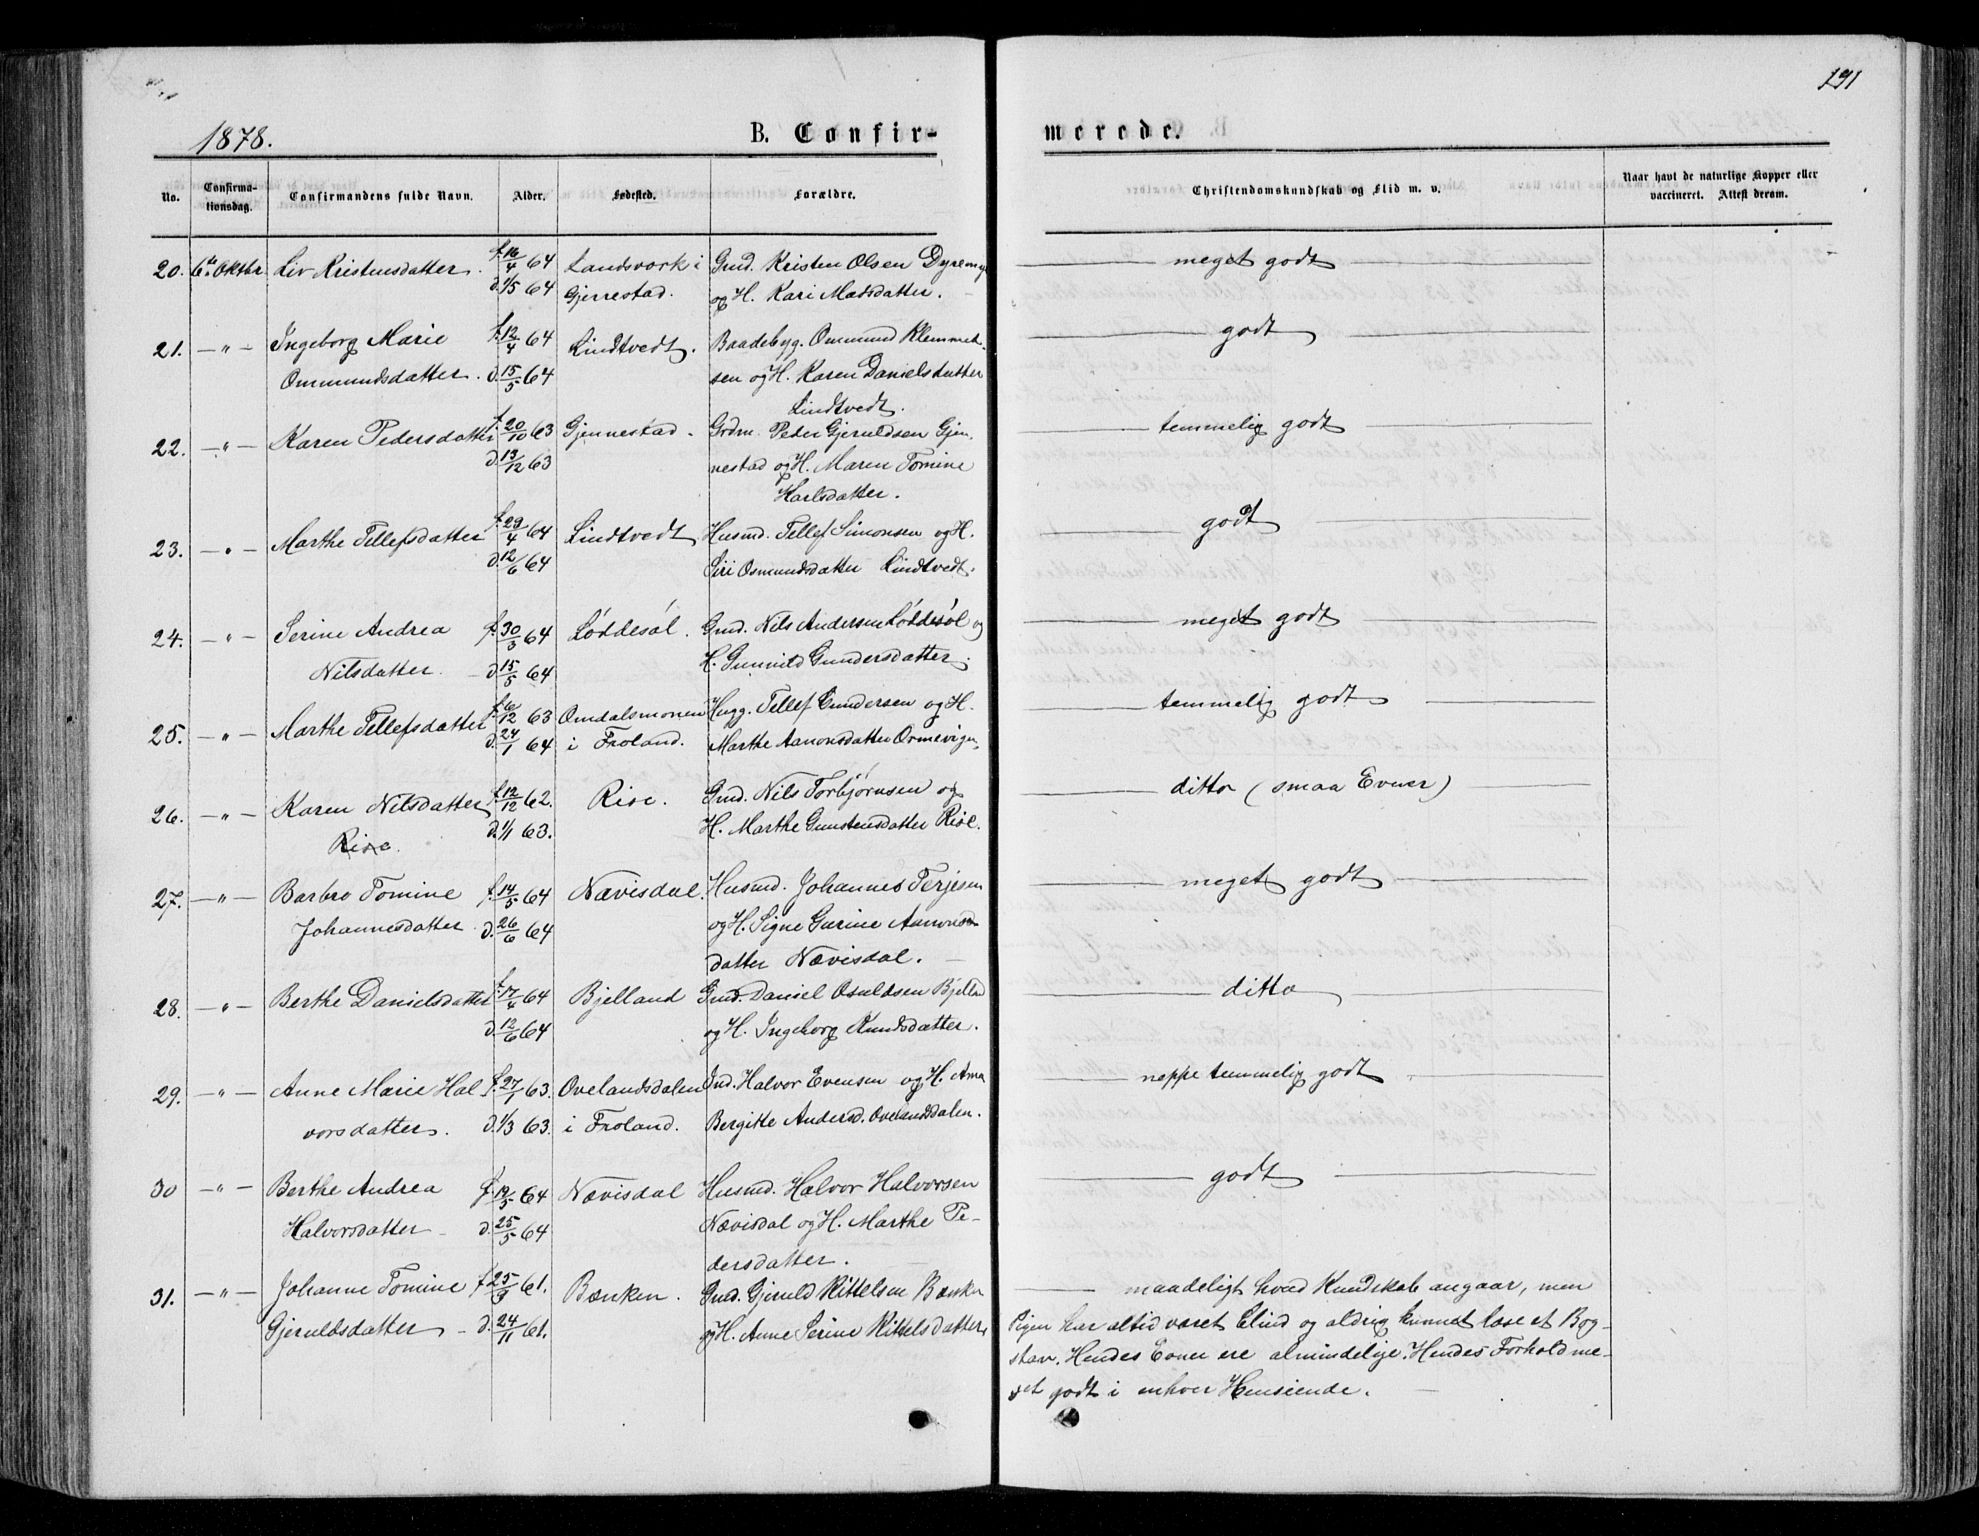 191
1878. B. Confir- merede.
No. Confirma-tionsdag. Confirmandens fulde Navn. Alder. Fødested. Forældre. Christendomskundskab og Flid m. v. Naar havt de naturlige Kopper eller vaccineret. Attest derom.
20. 6te Oktbr Liv Kristensdatter. f. 16/4 64 Landsverk i Gmd. Kristen Olsen Dyremyr meget godt
d. 1/5 64 Gjerrestad. og H. Kari Madsdatter.
21. —"— Ingeborg Marie f. 12/4 64 Lindtvedt. Baadebyg. Ommund Klemmet- godt
Ommundsdatter. d. 15/5 64 sen og H. Karen Danielsdatter
Lindtvedt.
22. —"— Karen Pedersdatter f. 20/10 63 Gjennestad. Grdm. Peder Gjeruldsen Gjen- temmelig godt
d. 13/12 63 nestad og H. Maren Tomine
Karlsdatter.
23. —"— Marthe Tellefsdatter f. 29/4 64 Lindtvedt Husmd. Tellef Simonsen og H. godt
d. 12/6 64 Siri Osmundsdatter Lindtvedt.
24. —"— Serine Andrea f. 30/3 64 Løddesøl. Gmd. Nils Andersen Løddesøl og meget godt
Nilsdatter. d. 15/5 64 H. Gunvild Gundersdatter.
25. —"— Marthe Tellefsdatter f. 6/12 63 Omdalsmonen Hugg. Tellef Gundersen og H. temmelig godt
d. 24/1 64 i Froland. Marthe Aanonsdatter Ormevigen.
26. —"— Karen Nilsdatter f. 12/12 62. Rise. Gmd. Nils Torbjørnsen og ditto (smaa Evner)
Rise. d. 1/1 63. H. Marthe Gunstensdatter Rise.
27. —"— Barbro Tomine f. 14/5 64 Nævisdal. Husmd. Johannes Terjesen meget godt
Johannesdatter d. 26/6 64 og H. Signe Gurine Aanons-
datter Nævisdal.
28. —"— Berthe Danielsdatter f. 17/4 64 Bjelland Gmd. Daniel Osuldsen Bjelland ditto
d. 12/6 64 og H. Ingeborg Knudsdatter.
29. —"— Anne Marie Hal- f. 27/1 63. Ovelandsdalen Ind. Halvor Evensen og H. Anna neppe temmelig godt
vorsdatter. d. 1/3 63. i Froland. Bergitte Andersd. Ovelandsdalen.
30 —"— Berthe Andrea f. 12/5 64 Nævisdal Husmd. Halvor Halvorsen godt
Halvorsdatter d. 25/5 64 Nævisdal og H. Marthe Pe-
dersdatter.
31. —"— Johanne Tomine f. 25/9 61. Bænken. Gmd. Gjeruld Kittelsen Bænken maadeligt hvad Kundskab angaar, men
Gjeruldsdatter d. 24/11 61. og H. Anne Serine Kittelsdatter. Pigen har altid været blind og aldrig kunnet læse et Bog-
stav. Hendes Evner ere almindelige. Hendes Forhold me-
get godt i enhver Henseende.